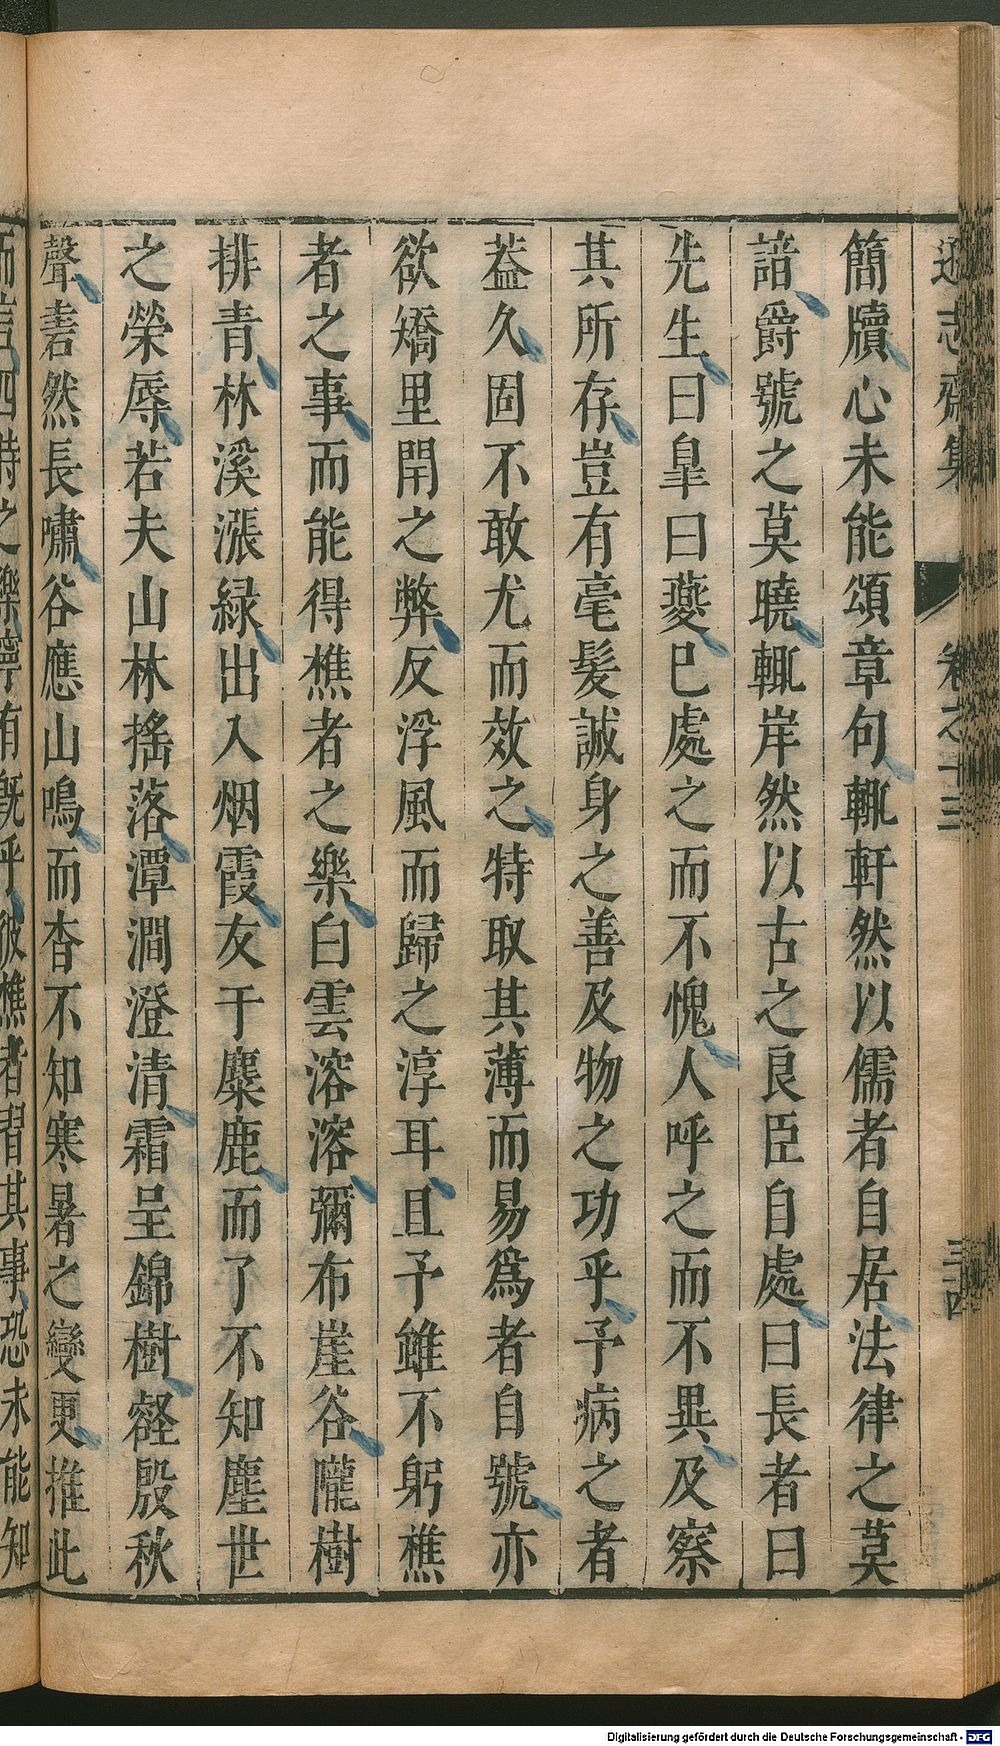 遜志齋集 卷之十三 三四
簡牘心未能頌章句輒軒然以儒者自居法律之莫
諳爵號之莫曉輒岸然以古之良臣自處曰長者曰
先生曰皐曰夔已處之而不愧人呼之而不異及察
其所存豈有毫髮誠身之善及物之功乎予病之者
葢久固不敢尤而效之特取其薄而易爲者自號亦
欲矯里閈之弊反浮風而歸之淳耳且予雖不躬樵
者之事而能得樵者之樂白雲溶溶彌布崖谷隴樹
排青林溪漲緑出入烟霞友于麋鹿而了不知塵世
之榮辱若夫山林搖落潭澗澄清霜呈錦樹壑殷秋
聲砉然長嘯谷應山鳴而杳不知寒暑之變更推此
而言四時之樂寧有旣乎彼樵者習其事恐未能知
Digitalisierung gefördert durch die Deutsche Forschungsgemeinschaft - DFG